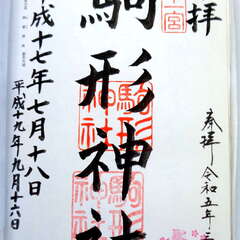 拝
奉拝 令和五年三
一宮
駒形神社
駒形
神社
駒形
神社
平成十七年七月十八日
平成十九年九月十六日